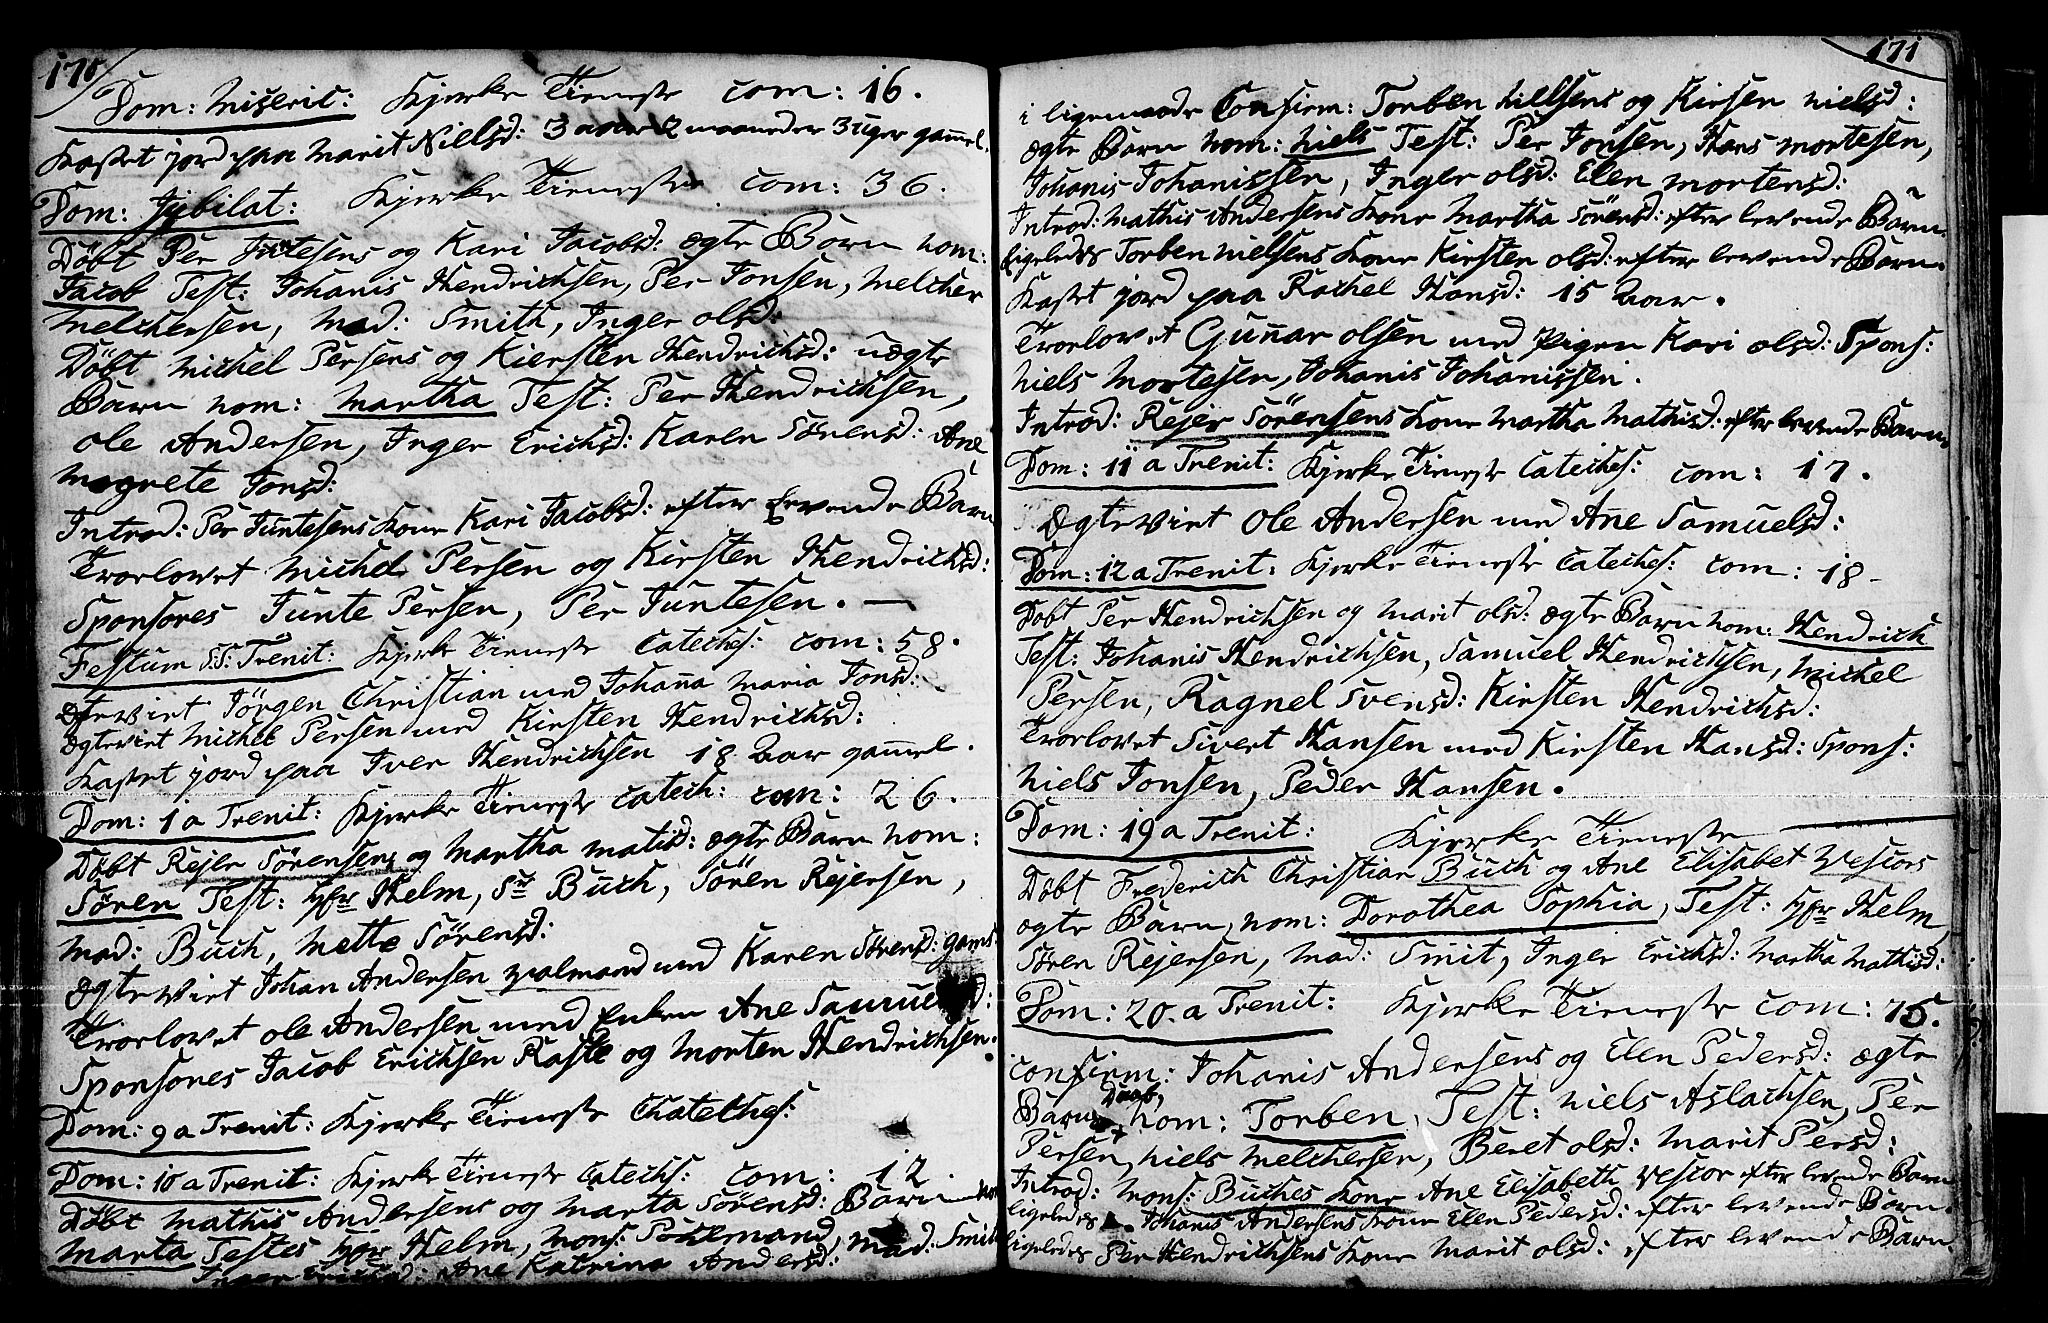 170
Dom: Miseric: Kjerke Tieneste com: 16.
Kastet jord paa Marit Nielsd: 3 aar 2 maaneder 3 uger gam̄el.
Dom: Jubilat: Kjerke Tieneste com: 36.
Döbt Per Juntesens og Kari Jacobsd: ægte Barn nom:
Jacob Test: Johanis Hendrichsen, Per Jonsen, Melcher
Melchersen, Mad: Smith, Inger olsd:
Döbt Michel Persens og Kiersten Hendrichsd: uægte
Barn nom: Martha Test: Per Hendrichsen,
ole Andersen, Inger Erichsd: Karen Sörensd: Ane
Magrete Jonsd:
Introd: Per Juntesens Kone Kari Jacobsd: efter Levende Barn
Troelovet Michel Persen og Kirsten Hendrichsd:
Sponsores Junte Persen, Per Juntesen. —
Festum S.S: Trenit: Kjerke Tieneste Cateches: com: 58.
Ægtevиet Jörgen Christian med Johan̄a Maria Jonsd:
Ægteviet Michel Persen med Kirsten Hendrichsd:
Kastet jord paa Iver Hendrichsen 18 aar gam̄el.
Dom: 1 a Trenit: Kjerke Tieneste Catech: com: 26.
Döbt Rejer Sörensens og Martha Matisd: ægte Barn nom:
Sören Test: Hr Helm, Sr Buch, Sören Rejersen,
Mad: Buch, Mette Sörensd:
Ægteviet Johan Andersen med Karen Sörensd: gams:
Troelovet ole Andersen med Enken Ane Samuelsd:
Sponsores Jacob Erichsen Raste og Morten Hendrichsen.
Dom: 9 a Trenit: Kjerke Tieneste Chateches:
Dom: 10 a Trenit: Kjerke Tieneste Catechs: com: 12.
Döbt Mathis Andersens og Marta Sörensd: Barn nom
Marta Testes Hr Helm, Mons: Pohlmand, Mad: Smit
Inger Erichsd: Ane Katrina Andersd:
171
i ligemaade Confirm: Torben Nielsens og Kirsen Nielsd:
ægte Barn nom: Niels Test: Per Jonsen, Hans Mortesen,
Johanis Johanissen, Inger olsd: Elen Mortensd:
Introd: Mathis Andersens Kone Martha Sörensd: efter levende Barn.
ligeledes Torben Nielsens Kone Kirsten olsd: efter levende Barn.
Kastet jord paa Rachel Hansd: 15 aar.
Troelovet Gun̄ar olsen med Pigen Kari olsd: Spons:
Niels Mortesen, Johanis Johanissen.
Introd: Rejer Sörensens Kone Martha Mathisd: efter levende Barn.
Dom: 11 a Trenit: Kjerke Tieneste Cateches: com: 17.
Ægteviet Ole Andersen med An̄e Samuelsd:
Dom: 12 a Trenit: Kjerke Tieneste Cateches: com: 18
Döbt Per Hendrichsen og Marit olsd: ægte Barn nom: Hendrich
Test: Johanis Hendrichsen, Samuel Hendrichsen, Michel
Persen, Ragnel Svensd: Kirsten Hendrichsd:
Troelovet Sivert Hansen med Kirsten Hansd: Spons:
Niels Jonsen, Peder Hansen.
Dom: 19 a Trenit: Kjerke Tieneste
Döbt Frederich Christian Buch og Ane Elisabet Vescors
ægte Barn, nom: Dorothea Sophia, Test: Hr Helm,
Sören Rejersen, Mad: Smit, Inger Erichsd: Martha Mathisd:
Dom: 20. a Trenit: Kjerke Tieneste com: 75.
Confirm: Johanis Andersens og Elen Pedersd: ægte
Barns Daab, nom: Torben, Test: Niels Aslachsen, Per
Persen, Niels Melchersen, Beret olsd: Marit Persd:
Introd: Mons: Buches Kone Ane Elisabeth Vescor efter levende Barn
ligeledes Johanis Andersens Kone Elen Pedersd: efter levende Barn.
ligeledes Per Hendrichsens Kone Marit olsd: efter levende Barn.